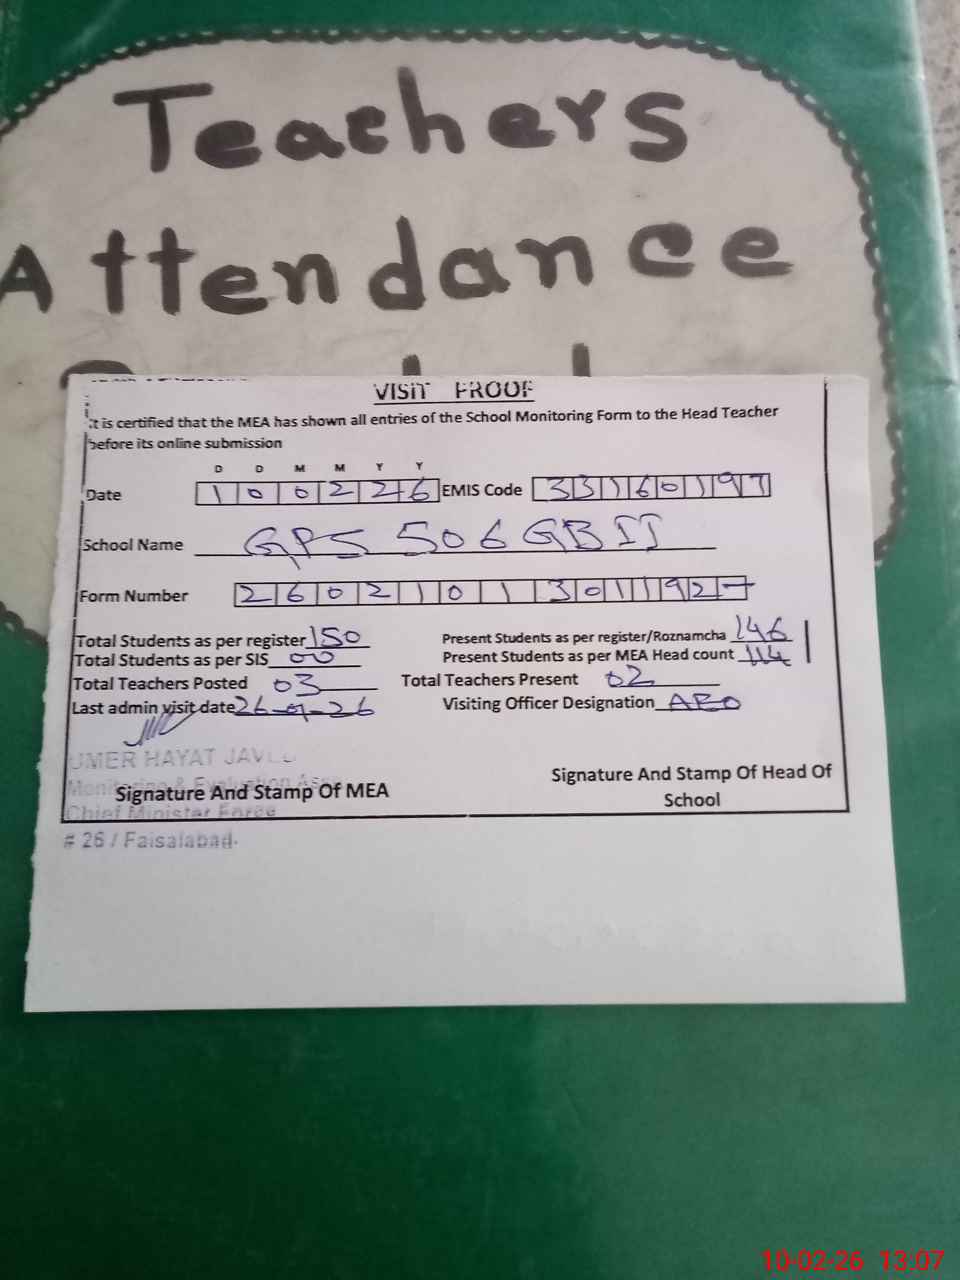 Teachers
Attendance
VISIT PROOF
It is certified that the MEA has shown all entries of the School Monitoring Form to the Head Teacher
before its online submission
D D M M Y Y
Date 100226 EMIS Code 33160197
School Name GPS 506 GB II
Form Number 2602101301927
Total Students as per register 150 Present Students as per register/Roznamcha 146
Total Students as per SIS 00 Present Students as per MEA Head count 114
Total Teachers Posted 03 Total Teachers Present 02
Last admin visit date 26-01-26 Visiting Officer Designation AEO
UMER HAYAT
Monitoring & Evaluation
Signature And Stamp Of MEA Signature And Stamp Of Head Of
School
Chief Minister Force
# 26 / Faisalabad.
10-02-26 13:07